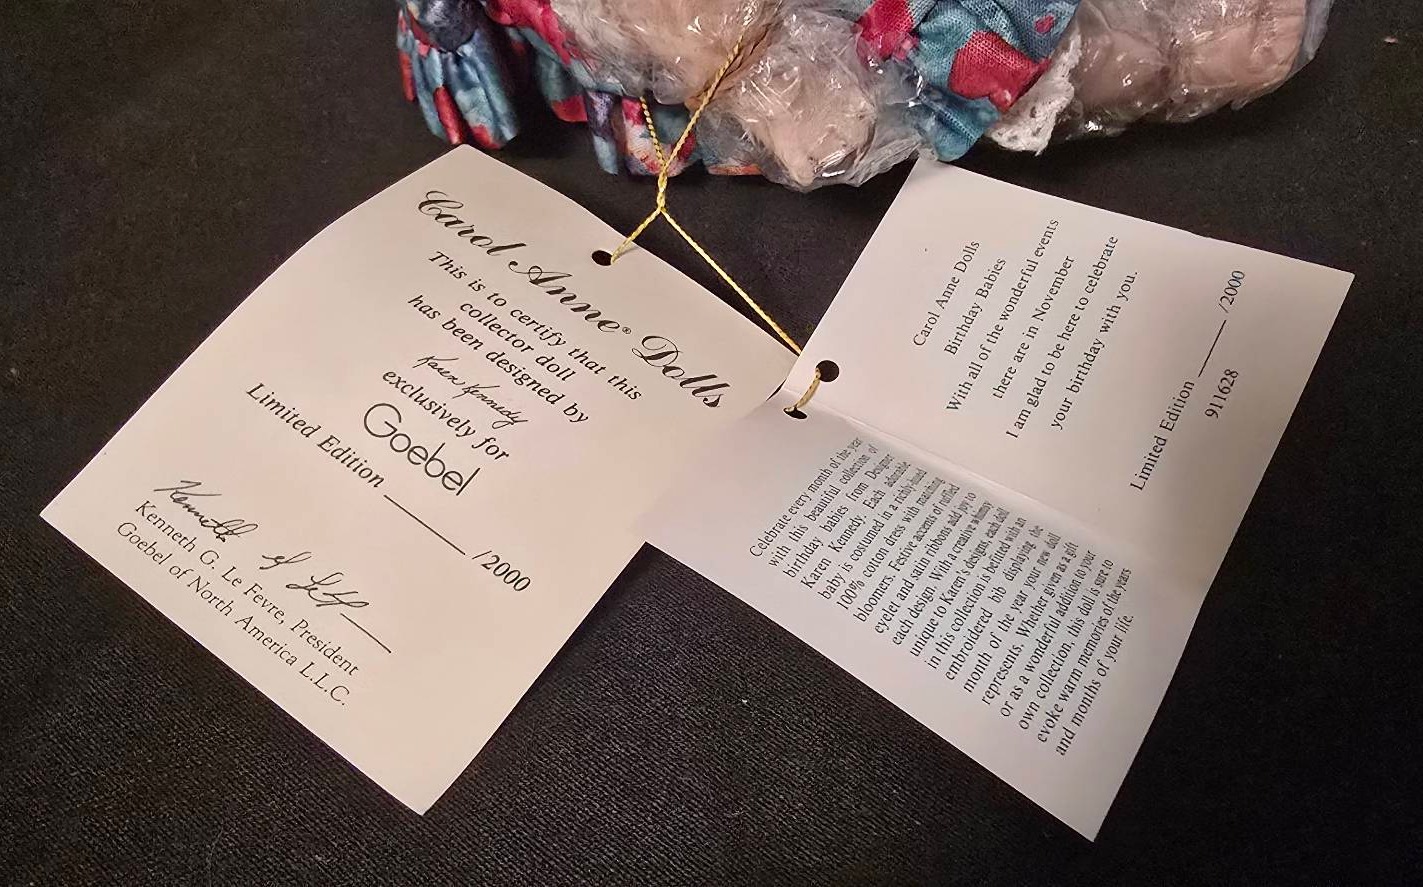 Carol Anne® Dolls
This is to certify that this
collector doll
has been designed by
Karen Kennedy
exclusively for
Goebel
Limited Edition ______ /2000
Kenneth G. Le Fevre, President
Goebel of North America L.L.C.
Carol Anne Dolls
Birthday Babies
With all of the wonderful events
there are in November
I am glad to be here to celebrate
your birthday with you.
Limited Edition ______ /2000
911628
Celebrate every month of the year
with this beautiful collection of
birthday babies from Designer
Karen Kennedy. Each adorable
baby is costumed in a richly-hued
100% cotton dress with matching
bloomers. Festive accents of ruffled
eyelet and satin ribbons add joy to
each design. With a creative whimsy
unique to Karen's designs, each doll
in this collection is befitted with an
embroidered bib displaying the
month of the year your new doll
represents. Whether given as a gift
or as a wonderful addition to your
own collection, this doll is sure to
evoke warm memories of the years
and months of your life.